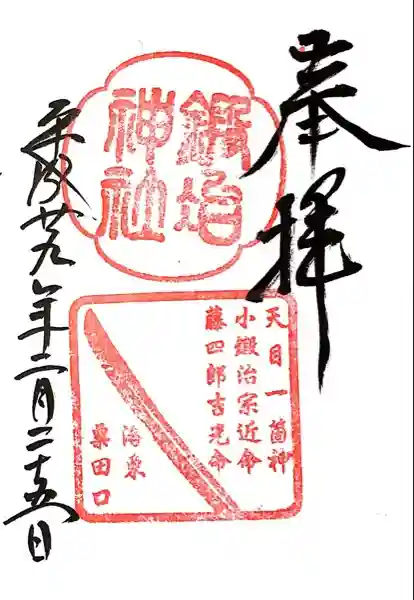 奉拝
鍛冶
神社
天目一箇神
小鍛冶宗近命
藤四郎吉光命
海東
粟田口
平成廿九年二月二十五日